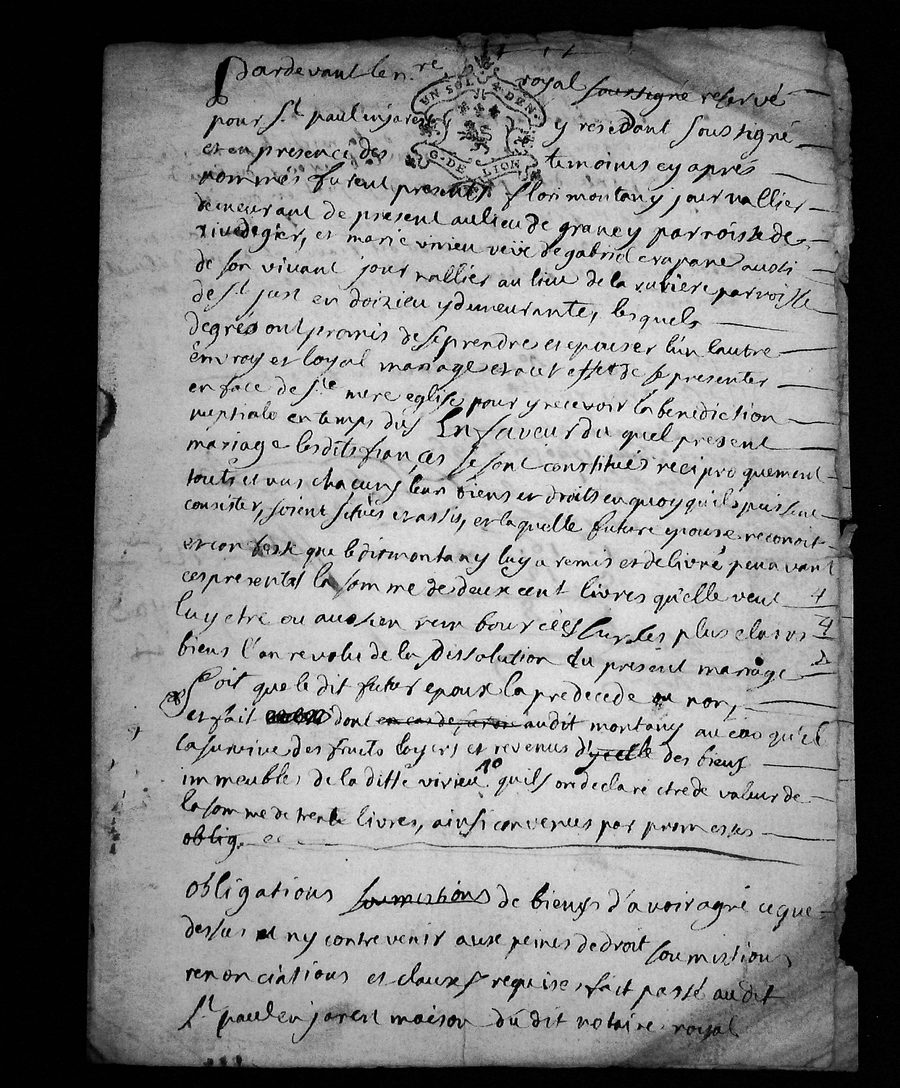 Pardevant le n.re royal soussigné reservé
UN SOL * DEN.
G. DE LION
pour S.t paul en jarest y residant soussigné
et en presence des temoins cy aprés
nommés furent presents flori montany journallier
demeurant de present au lieu de graney parroisse de
rivedegier, et marie virieu veüe de gabriel crapane quoti
de son vivant journallier au lieu de la rubiere parroisse
de S.t just en doizieu y demeurante, lesquels
degrés ont promis de se prendre et epouser l'un lautre
en vray et loyal mariage et a cet effet de se presenter
en face de S.te mere eglise pour y recevoir la benediction
nuptiale en temps dus En faveur du quel present
mariage lesdits fiancés se sont constitués reciproquement
touts et uns chacuns leurs biens et droits en quoy qu'ils puissent
consister, soient situés et assis, et laquelle future epouse reconoit
et confesse que ledit montany luy a remis et delivré peu avant
ces presentes la somme de deux cent livres qu'elle veut
luy etre ou aux sien rembourcées sur les plus clairs
biens l'an revolu de la dissolution du present mariage
soit que le dit futur epoux la predecede ou non,
et fait dont en cas de survie audit montany au cas qu'il
la survive des fruits loyers et revenus d'ycelle des biens
immeubles de la ditte virieu qu'ils on declaré etre de valeur de
la somme de trente livres, ainsi convenus par promesses
oblig. ec
obligations soumissions de biens d'avoir agré ce que
dessus et ny contrevenir aux peines de droit soumissions
renonciations et clauses requises fait passé audit
S.t paul en jarest maison du dit notaire royal